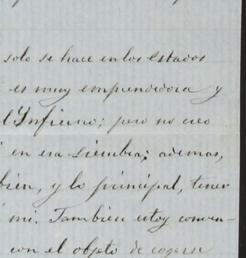 solo se hace en los estados
es muy emprendedora y
l Infierno; pero no creo
en esa siembra; ademas,
bien, y lo principal, tener
mi. Tambien estoy conven-
con el objeto de cogerse